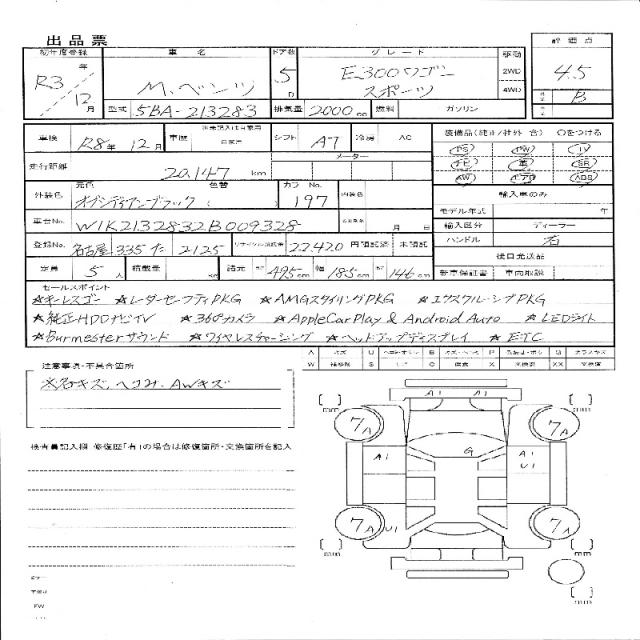 出品票
初年度登録 車名 ドア数 グレード 駆動 評価点
R3年 12月 M.ベンツ 5D E300ワゴン スポーツ 2WD 4WD 4.5 B
型式 5BA-213283 排気量 2000cc 燃料 ガソリン
車検 R8年 12月 車歴 自家用 シフト A7 冷房 AC
装備品(純正/社外 含) ○をつける
PS PW TV
走行距離 20,147 km メーター
革 SR
AW エアB ABS
外装色 元色 色替 カラーNo. 内装色
オブシディアンブラック ( 197
輸入車のみ
モデル年式 年
車台No. W1K2132832B009328 月 日
輸入区分 ディーラー
登録No. 名古屋 335 た 2125 リサイクル預託金 22,420 円預託済 未預託
ハンドル 右
後日発送品
定員 5人 積載量 kg 諸元 495cm 幅 185cm 146cm
新車保証書 車両取説
セールスポイント
★キーレスゴー ★レーダーセーフティPKG ★AMGスタイリングPKG ★エクスクルーシブPKG
★純正HDDナビTV ★360°カメラ ★AppleCarPlay & Android Auto ★LEDライト
★Burmesterサウンド ★ワイヤレスチャージング ★ヘッドアップディスプレイ ★ETC
A キズ U B P G ガラスキズ
W S C X 交換要 XX 交換済
注意事項・不具合箇所
※小キズ、ヘコミ、AWキズ
検査員記入欄 修復歴「有」の場合は修復箇所・交換箇所を記入
mm
A1 A1
7A 7A
A1 G A1
U1
7A U1 7A
mm mm
mm